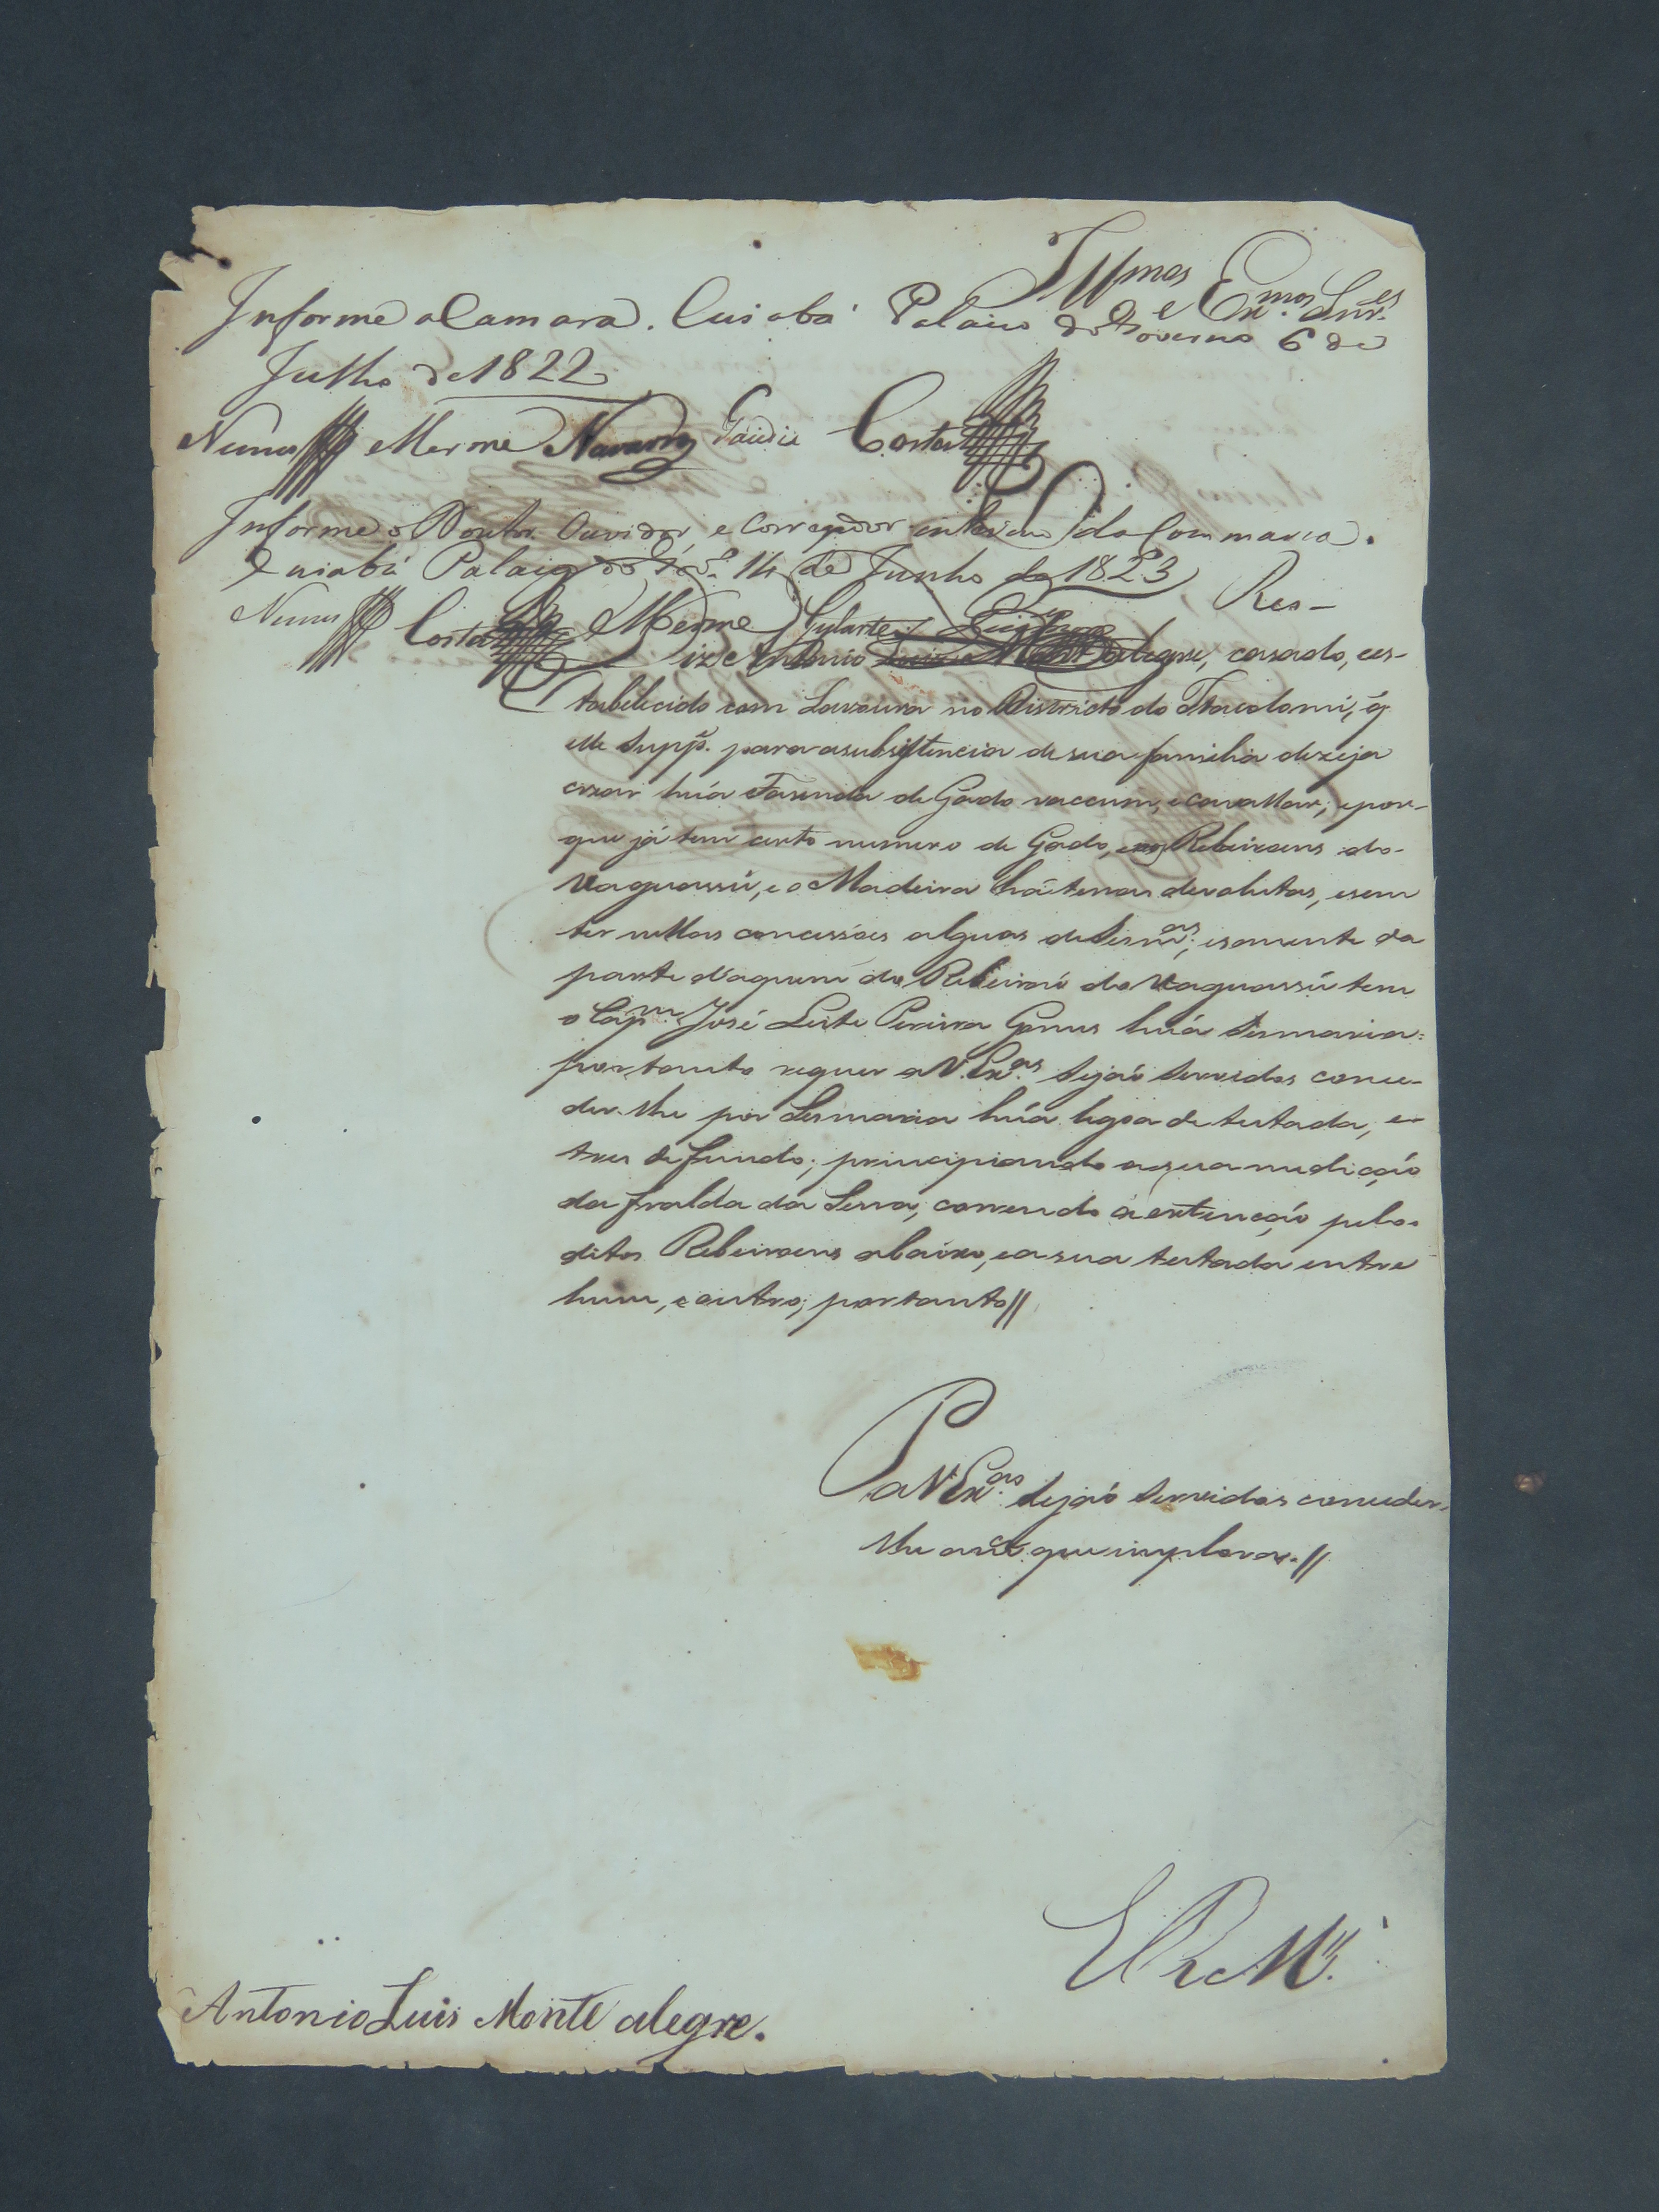 Illmos e Exmos Snres
Informe a Camara. Cuiabá Palacio do Governo 6 de
Julho de 1822
Nunes Merme Navarro Gaudie Costa
Informe o Doutor Ouvidor, e Corregedor interino da Commarca.
Cuiabá Palacio do Govo. 14 de Junho de 1823
Nunes Costa Merme
Res-
Diz Antonio Luis Monte alegre, casado, es-
tabilicido com Lavoura no Districto do, q̃
elle Suppe. para a subsistencia de sua familia dezeja
crear huá Fasenda de Gado vaccum, e cavallar; e por-
que já tem certo numero de Gado, e nos Ribeiroens do
Vaguassú, e o Madeira há terras devolutas, e sem
ter nellas concessões alguas de Sesmas; e somente da
parte d'aquem do Ribeiraõ do Vaguassú tem
o Capm. José Leite Pereira Gomes huá Sesmaria:
portanto requer a V. Exas. Sejaõ Servidos conce-
der-lhe por Sesmaria huá legoa de testada, e
tres de fundo; principiando a sua mediçaõ
da fralda da Serra, correndo a extençaõ pelos
ditos Ribeiroens abaixo, e a sua testada entre
hum, e outro; portanto//
P a V. Exas. Sejaõ Servidos conceder-
lhe a mce. que implora.//
E R Mce.
Antonio Luis Monte alegre.